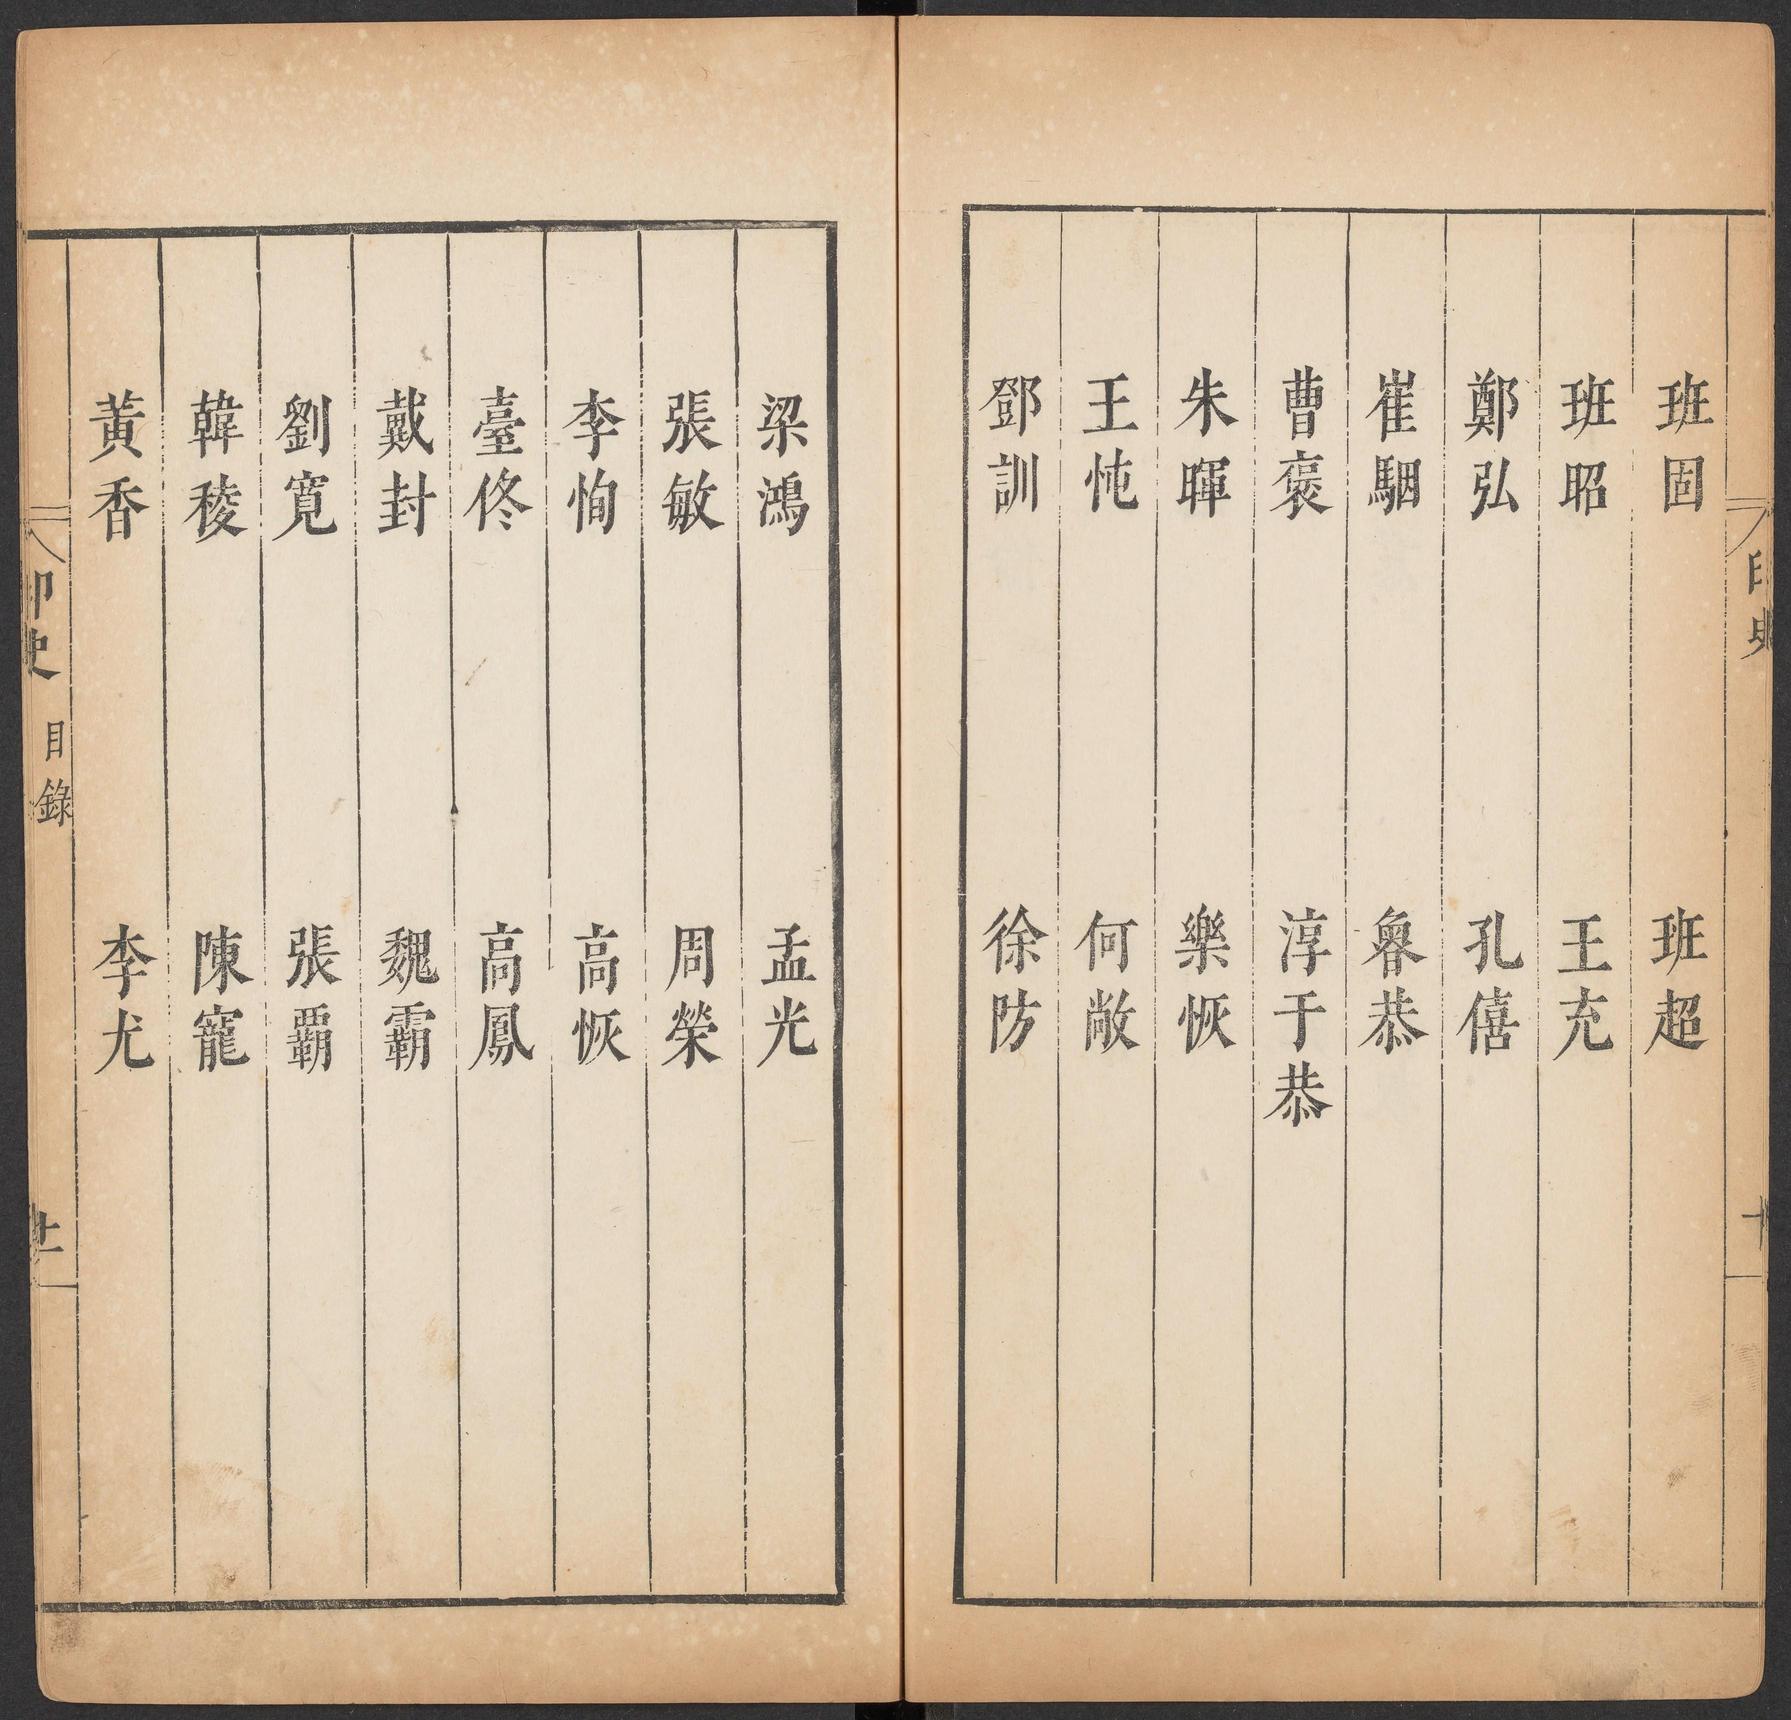 班固 班超
班昭 王充
鄭弘 孔僖
崔駰 魯恭
曹褒 淳于恭
朱暉 樂恢
王忳 何敞
鄧訓 徐防
梁鴻 孟光
張敏 周榮
李恂 高恢
臺佟 高鳳
戴封 魏霸
劉寬 張霸
韓稜 陳寵
黃香 李尤
印史 目錄